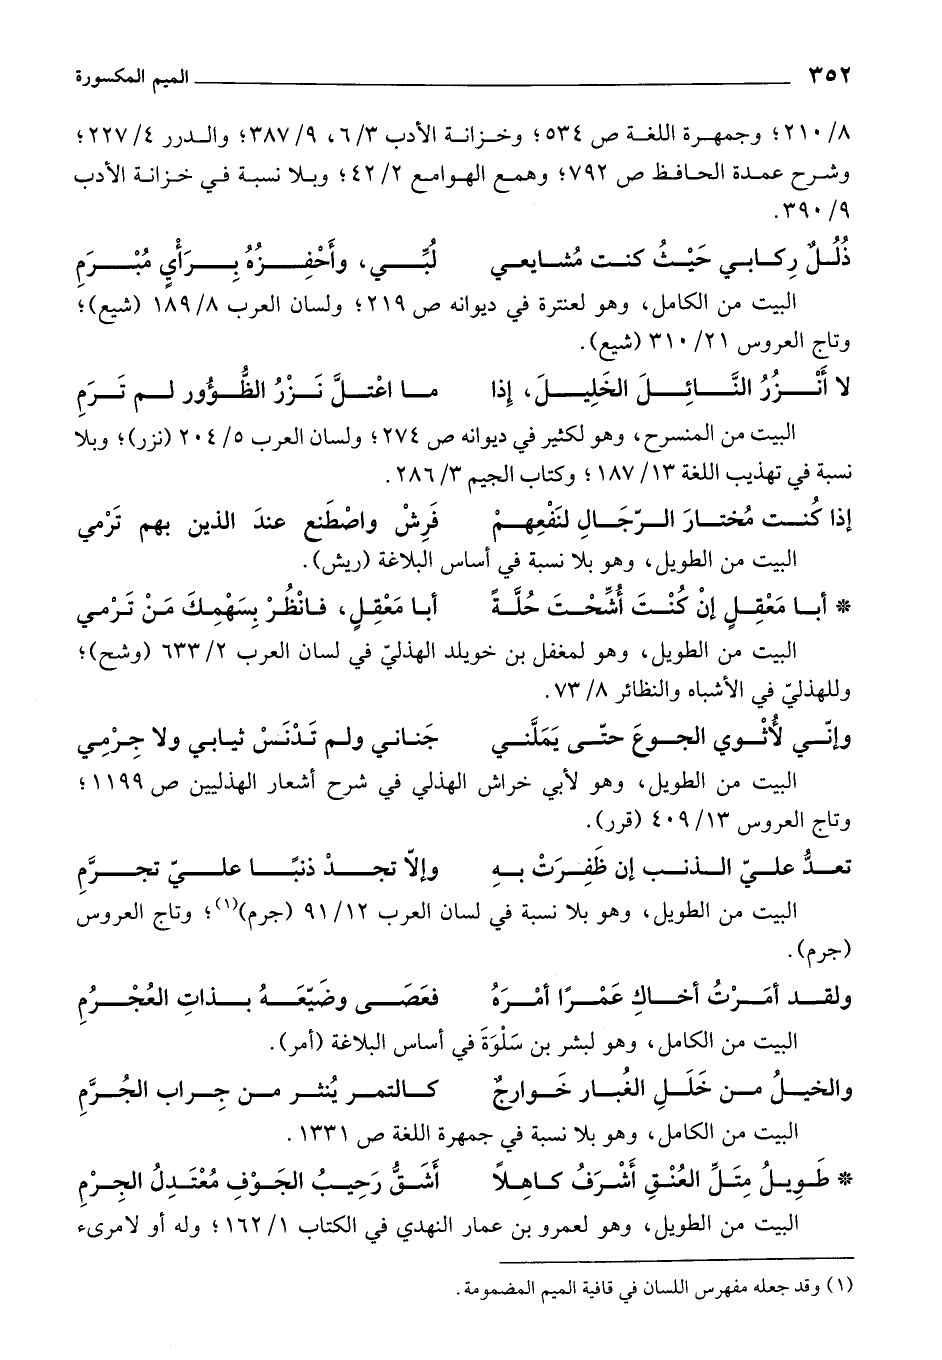 ٣٥٢ الميم المكسورة
٨/ ٢١٠؛ وجمهرة اللغة ص ٥٣٤؛ وخزانة الأدب ٣/ ٦، ٩/ ٣٨٧؛ والدرر ٤/ ٢٢٧؛
وشرح عمدة الحافظ ص ٧٩٢؛ وهمع الهوامع ٢/ ٤٢؛ وبلا نسبة في خزانة الأدب
٩/ ٣٩٠.
ذُلُلٌ رِكابي حَيْثُ كنت مُشايعي لُبِّي، وأَحْفِزُهُ بِرَأْيٍ مُبْرَمِ
البيت من الكامل، وهو لعنترة في ديوانه ص ٢١٩؛ ولسان العرب ٨/ ١٨٩ (شيع)؛
وتاج العروس ٢١/ ٣١٠ (شيع).
لا أَنْزُرُ النَّائِلَ الخَلِيلَ، إذا ما اعْتلَّ نَزْرُ الظُّؤُور لم تَرَمِ
البيت من المنسرح، وهو لكثير في ديوانه ص ٢٧٤؛ ولسان العرب ٥/ ٢٠٤ (نزر)؛ وبلا
نسبة في تهذيب اللغة ١٣/ ١٨٧؛ وكتاب الجيم ٣/ ٢٨٦.
إذا كُنت مُختارَ الرّجَالِ لنَفْعِهِمْ فَرِشْ واصْطَنع عندَ الذين بهم تَرْمي
البيت من الطويل، وهو بلا نسبة في أساس البلاغة (ريش).
* أبا مَعْقِلٍ إنْ كُنْتَ أُشِّحْتَ حُلَّةً أبا مَعْقِلٍ، فانْظُرْ بِسَهْمِكَ مَنْ تَرْمي
البيت من الطويل، وهو لمغفل بن خويلد الهذليّ في لسان العرب ٢/ ٦٣٣ (وشح)؛
وللهذليّ في الأشباه والنظائر ٨/ ٧٣.
وإنّي لأُثْوي الجوعَ حتّى يَمَلَّني جَناني ولم تَدْنَسْ ثيابي ولا جِرْمِي
البيت من الطويل، وهو لأبي خراش الهذلي في شرح أشعار الهذليين ص ١١٩٩؛
وتاج العروس ١٣/ ٤٠٩ (قرر).
تعدُّ عليّ الذنب إن ظَفِرَتْ بهِ وإلاّ تجدْ ذنبًا عليّ تجرَّمِ
البيت من الطويل، وهو بلا نسبة في لسان العرب ١٢/ ٩١ (جرم)(١)؛ وتاج العروس
(جرم).
ولقد أمَرْتُ أخاكِ عَمْرًا أمْرَهُ فعَصَى وضَيّعَهُ بذاتِ العُجْرُمِ
البيت من الكامل، وهو لبشر بن سَلْوَةَ في أساس البلاغة (أمر).
والخيلُ من خَلَلِ الغُبار خَوارجٌ كالتمر يُنثر من جِراب الجُرَّمِ
البيت من الكامل، وهو بلا نسبة في جمهرة اللغة ص ١٣٣١.
* طَوِيلُ مِتَلِّ العُنْقِ أشْرَفُ كاهِلاً أَشَقُّ رَحِيبُ الجَوْفِ مُعْتَدِلُ الجِرْمِ
البيت من الطويل، وهو لعمرو بن عمار النهدي في الكتاب ١/ ١٦٢؛ وله أو لامرىء
(١) وقد جعله مفهرس اللسان في قافية الميم المضمومة.